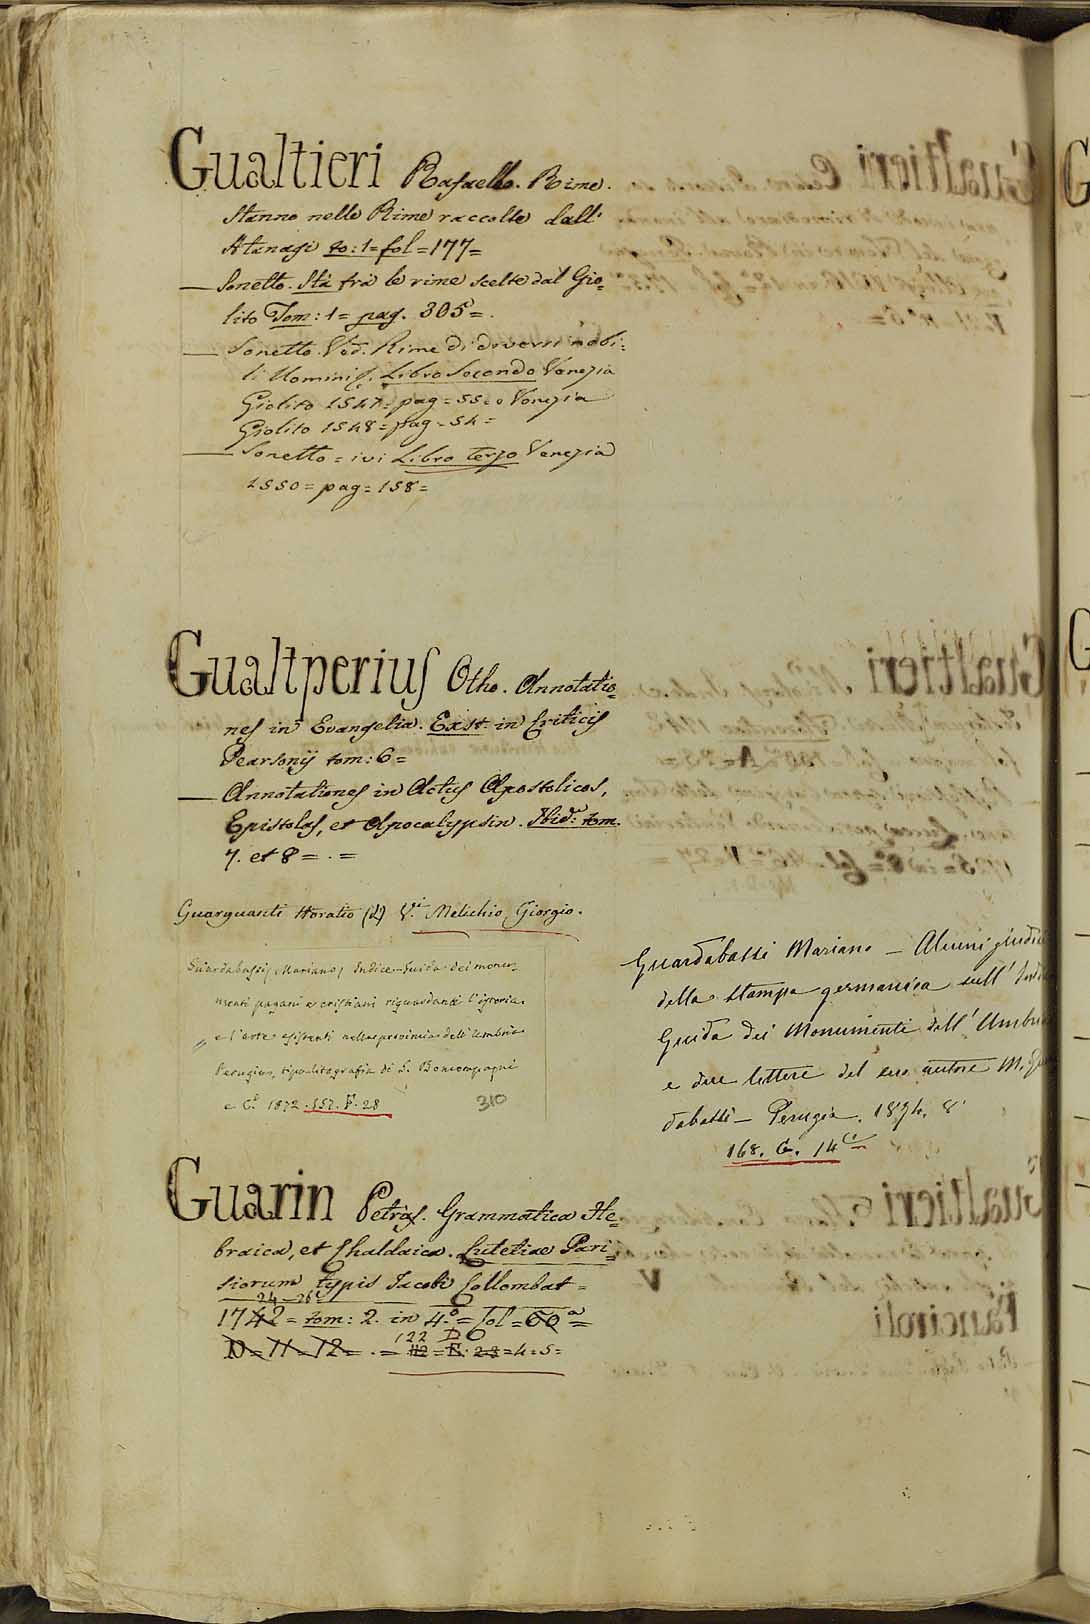 Gualtieri Rafaello. Rime.
Stanno nelle Rime raccolte dall'
Atanagi to: 1= fol = 177=
— Sonetto. Stà fra le rime scelte dal Gio=
lito Tom: 1= pag. 305=.
— Sonetto. Ved. Rime di diversi nobi=
li Uomini &c. Libro Secondo Venezia
Giolito 1547= pag = 55= o Venezia
Giolito 1548= pag = 54=
— Sonetto = ivi Libro terzo Venezia
1550= pag= 158=
Gualtperius Otho. Annotatio=
nes in Evangelia. Exst. in Criticis
Pearsonij tom: 6=
— Annotationes in Actus Apostolicos,
Epistolas, et Apocalypsin. Ibid. tom.
7. et 8= . =
Guarguanti Horatio (d) V. Melichio Giorgio.
Guardabassi Mariano / Indice-Guida dei monu=
menti pagani e cristiani riguardanti l'istoria
e l'arte esistenti nella provincia dell'Umbria
Perugia, tipo-litografia di G. Boncompagni
e C. 1872. 157. F. 28
310
Guardabassi Mariano — Alcuni giudizi
della stampa germanica sull'
Guida dei Monumenti dell'Umbria
e due lettere del suo autore M.
dabassi — Perugia. 1874. 8°
168. G. 14
Guarin Petrus. Grammatica He=
braica, et Chaldaica. Lutetiae Pari=
siorum typis Jacobi Collombat =
24-26
1742 = tom: 2. in 4.° = fol = 60 =
D = 11 = 12= . = 122 D 6
112 = E. 28 = 4 = 5 =